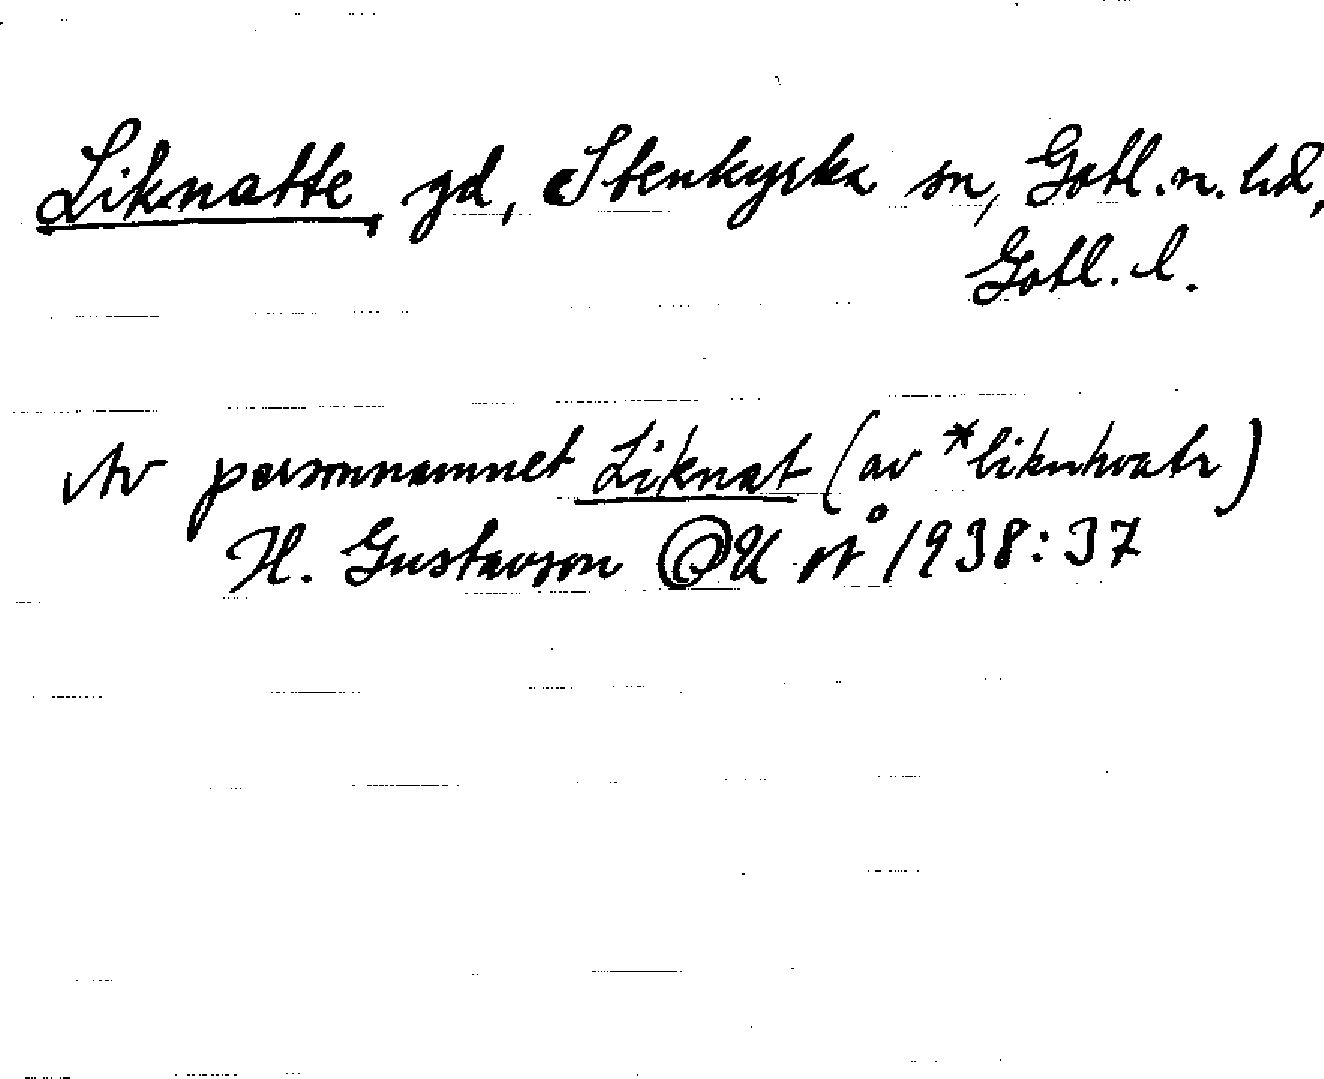 Liknatte, gd, Stenkyrka sn, Gotl. n. hd,
Gotl. l.
Av personnamnet Liknat (av *liknhvatr)
H. Gustavson GU å 1938:37